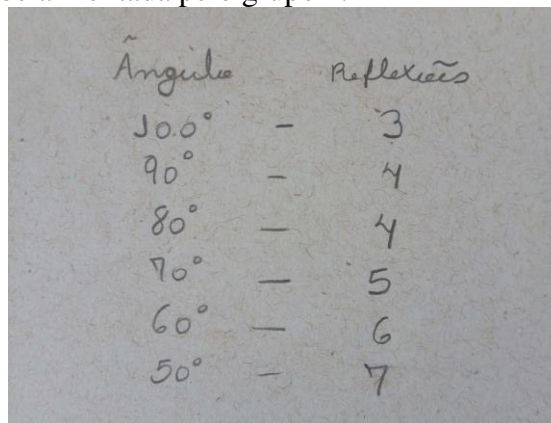 Ângulo Reflexões
100° - 3
90° - 4
80° - 4
70° - 5
60° - 6
50° - 7